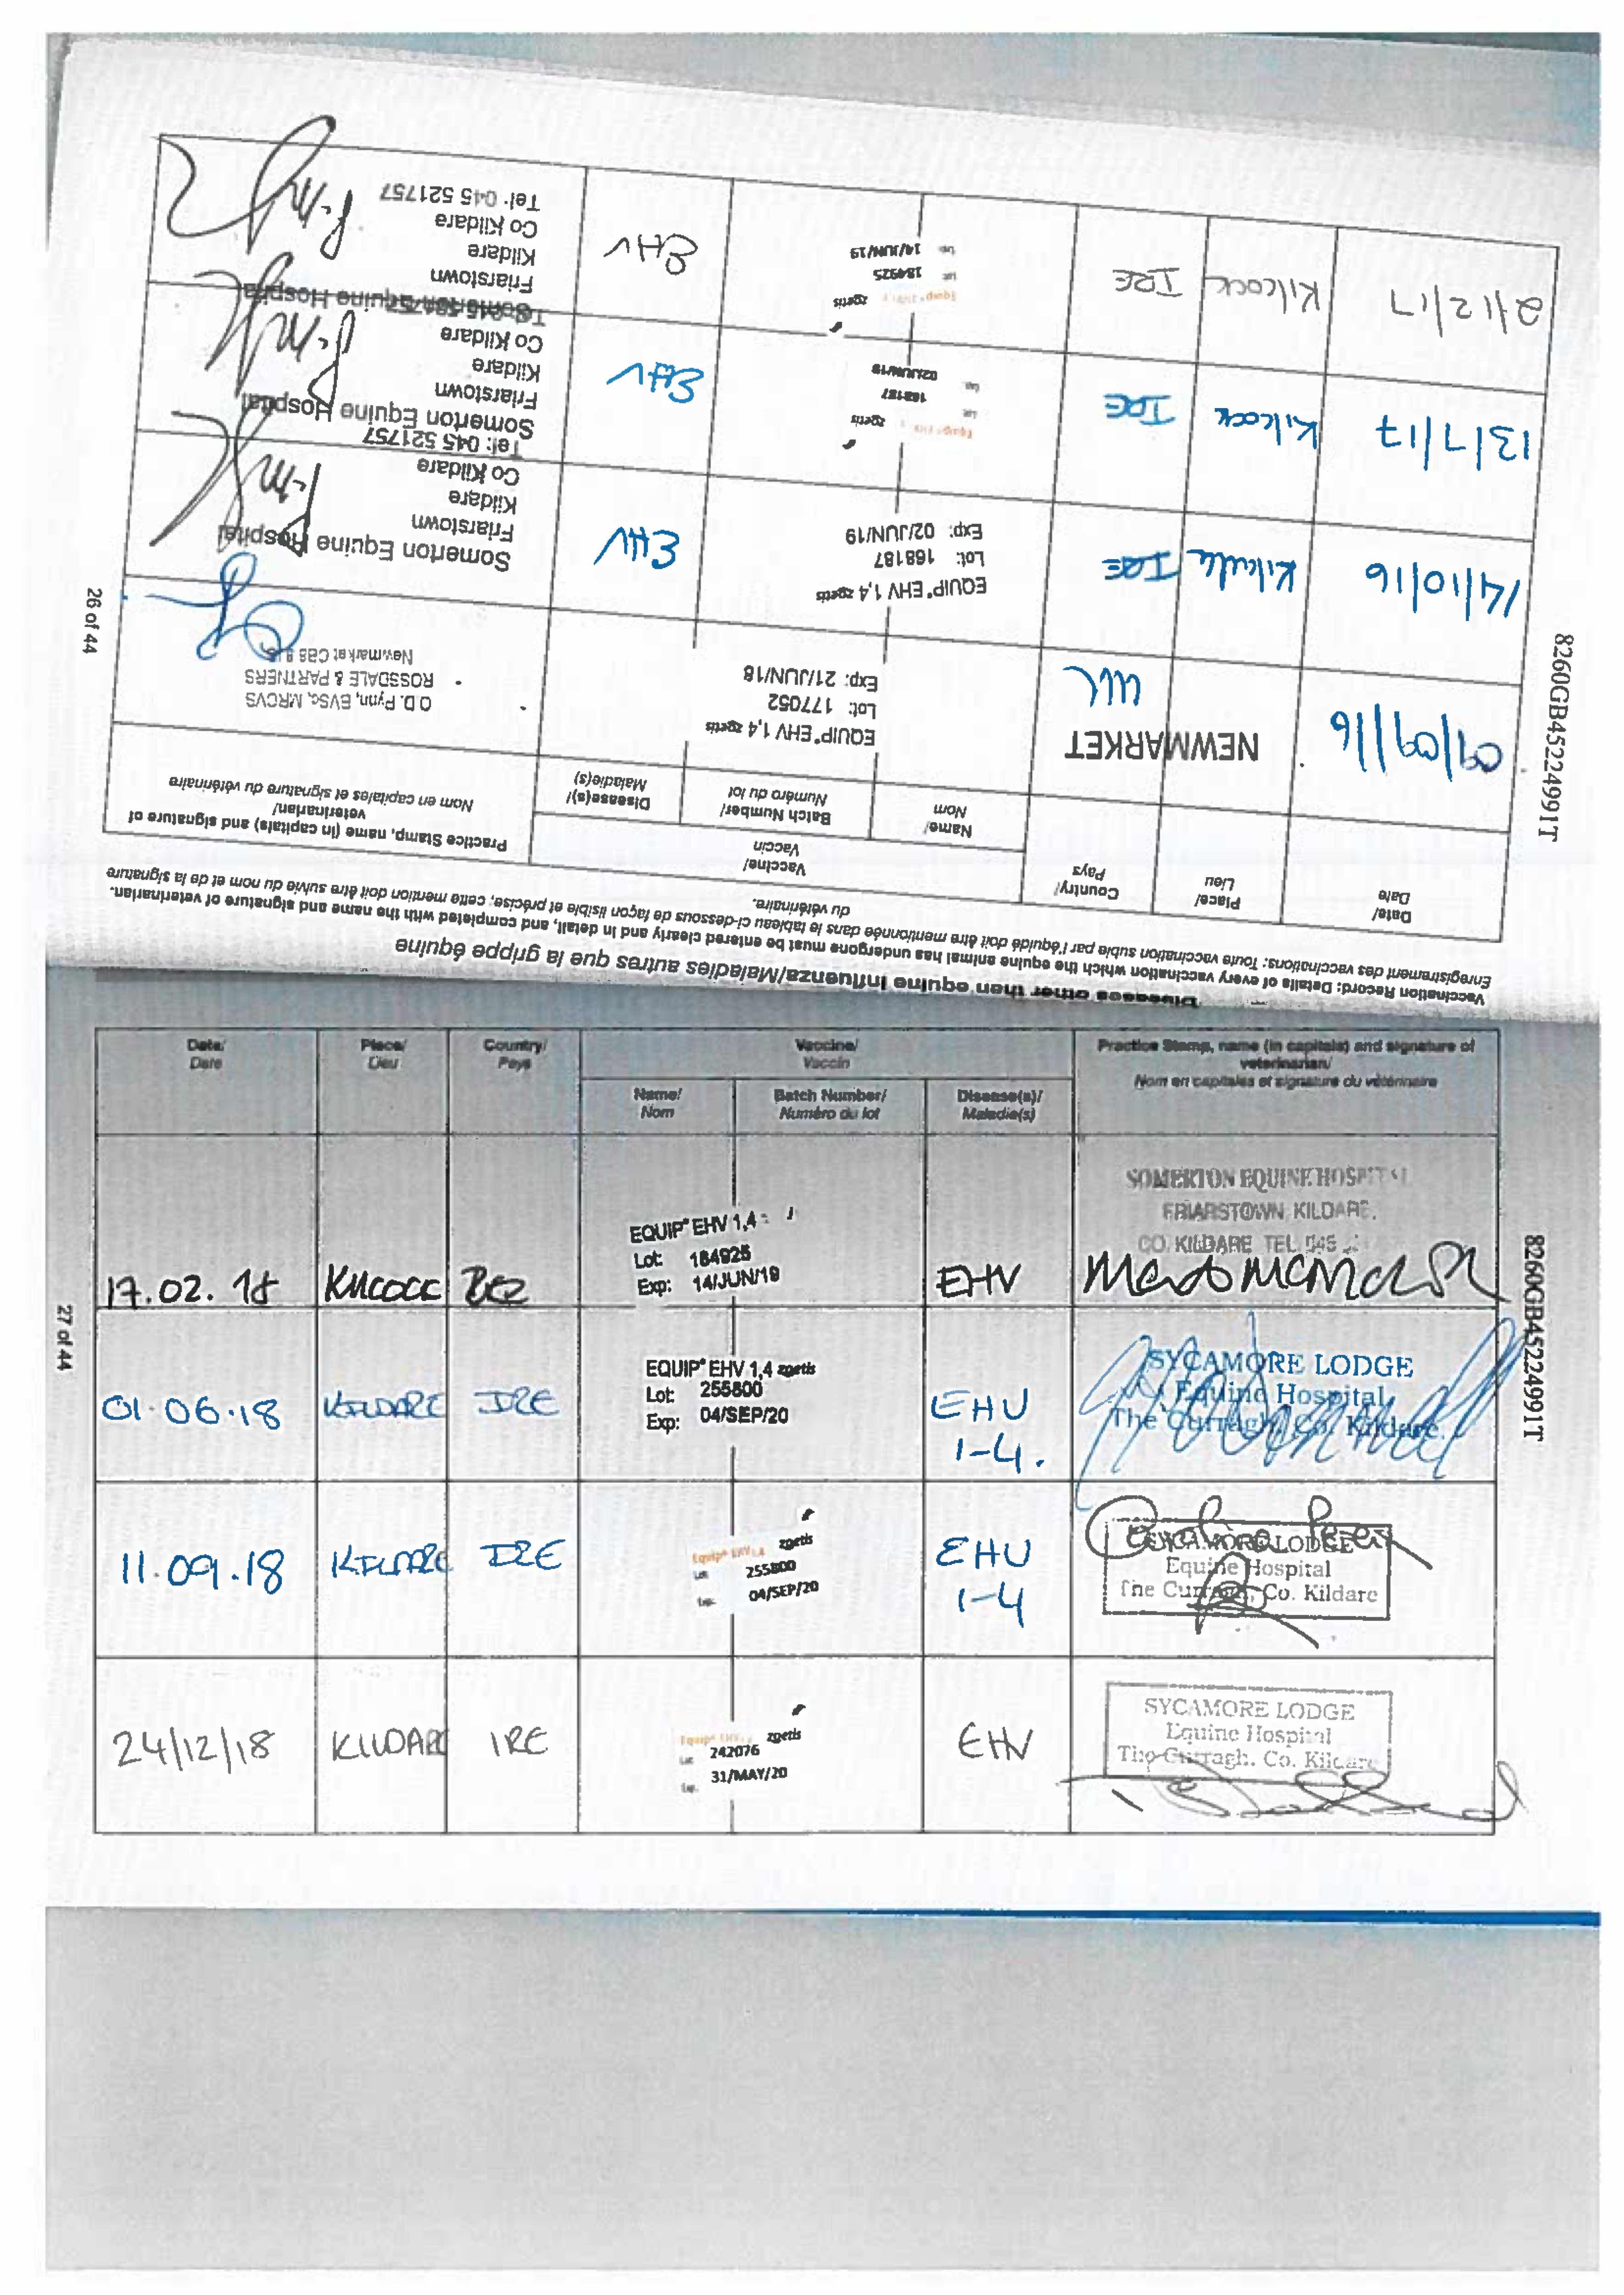 Diseases other than equine influenza/Maladies autres que la grippe équine
Vaccination Record: Details of every vaccination which the equine animal has undergone must be entered clearly and in detail, and completed with the name and signature of veterinarian.
Enregistrement des vaccinations: Toute vaccination subie par l'équidé doit être mentionnée dans le tableau ci-dessous de façon lisible et précise, cette mention doit être suivie du nom et de la signature
du vétérinaire.
Date/ Place/ Country/ Vaccine/ Practice Stamp, name (in capitals) and signature of
Date Lieu Pays Vaccin veterinarian/
Nom en capitales et signature du vétérinaire
Name/ Batch Number/ Disease(s)/
Nom Numéro du lot Maladie(s)
09/09/16 NEWMARKET UK
EQUIP® EHV 1,4 zoetis
Lot: 177052
Exp: 21/JUN/18
O.D. Pynn, BVSc, MRCVS
ROSSDALE & PARTNERS
Newmarket CB8
14/10/16 IRE
EQUIP® EHV 1,4 zoetis
Lot: 168187
Exp: 02/JUN/19
EHV
Somerton Equine Hospital
Friarstown
Kildare
Co Kildare
Tel: 045 521757
13/7/17 Kilcock IRE
Equip® EHV 1,4 zoetis
Lot: 168187
02/JUN/19
EHV
Somerton Equine Hospital
Friarstown
Kildare
Co Kildare
Tel: 045 521757
2/12/17 Kilcock IRE
Equip® EHV 1,4 zoetis
Lot: 184925
Exp: 14/JUN/19
EHV
Somerton Equine Hospital
Friarstown
Kildare
Co Kildare
Tel: 045 521757
26 of 44
8260GB45224991T
Date/ Place/ Country/ Vaccine/ Practice Stamp, name (in capitals) and signature of
Date Lieu Pays Vaccin veterinarian/
Nom en capitales et signature du vétérinaire
Name/ Batch Number/ Disease(s)/
Nom Numéro du lot Maladie(s)
17.02.18 KILCOCK
EQUIP® EHV 1,4
Lot: 184925
Exp: 14/JUN/19
EHV
SOMERTON EQUINE HOSPITAL
FRIARSTOWN, KILDARE,
CO. KILDARE TEL 045
01.06.18 KILDARE IRE
EQUIP® EHV 1,4 zoetis
Lot: 255800
Exp: 04/SEP/20
EHV
1-4.
SYCAMORE LODGE
Equine Hospital,
The Curragh, Co. Kildare.
11.09.18 KILDARE IRE
Equip® EHV 1,4 zoetis
Lot: 255800
Exp. 04/SEP/20
EHV
1-4
SYCAMORE LODGE
Equine Hospital
The Curragh, Co. Kildare
24/12/18 KILDARE IRE
Equip® EHV zoetis
Lot 242076
Exp. 31/MAY/20
EHV
SYCAMORE LODGE
Equine Hospital
The Curragh. Co. Kildare
27 of 44
8260GB45224991T